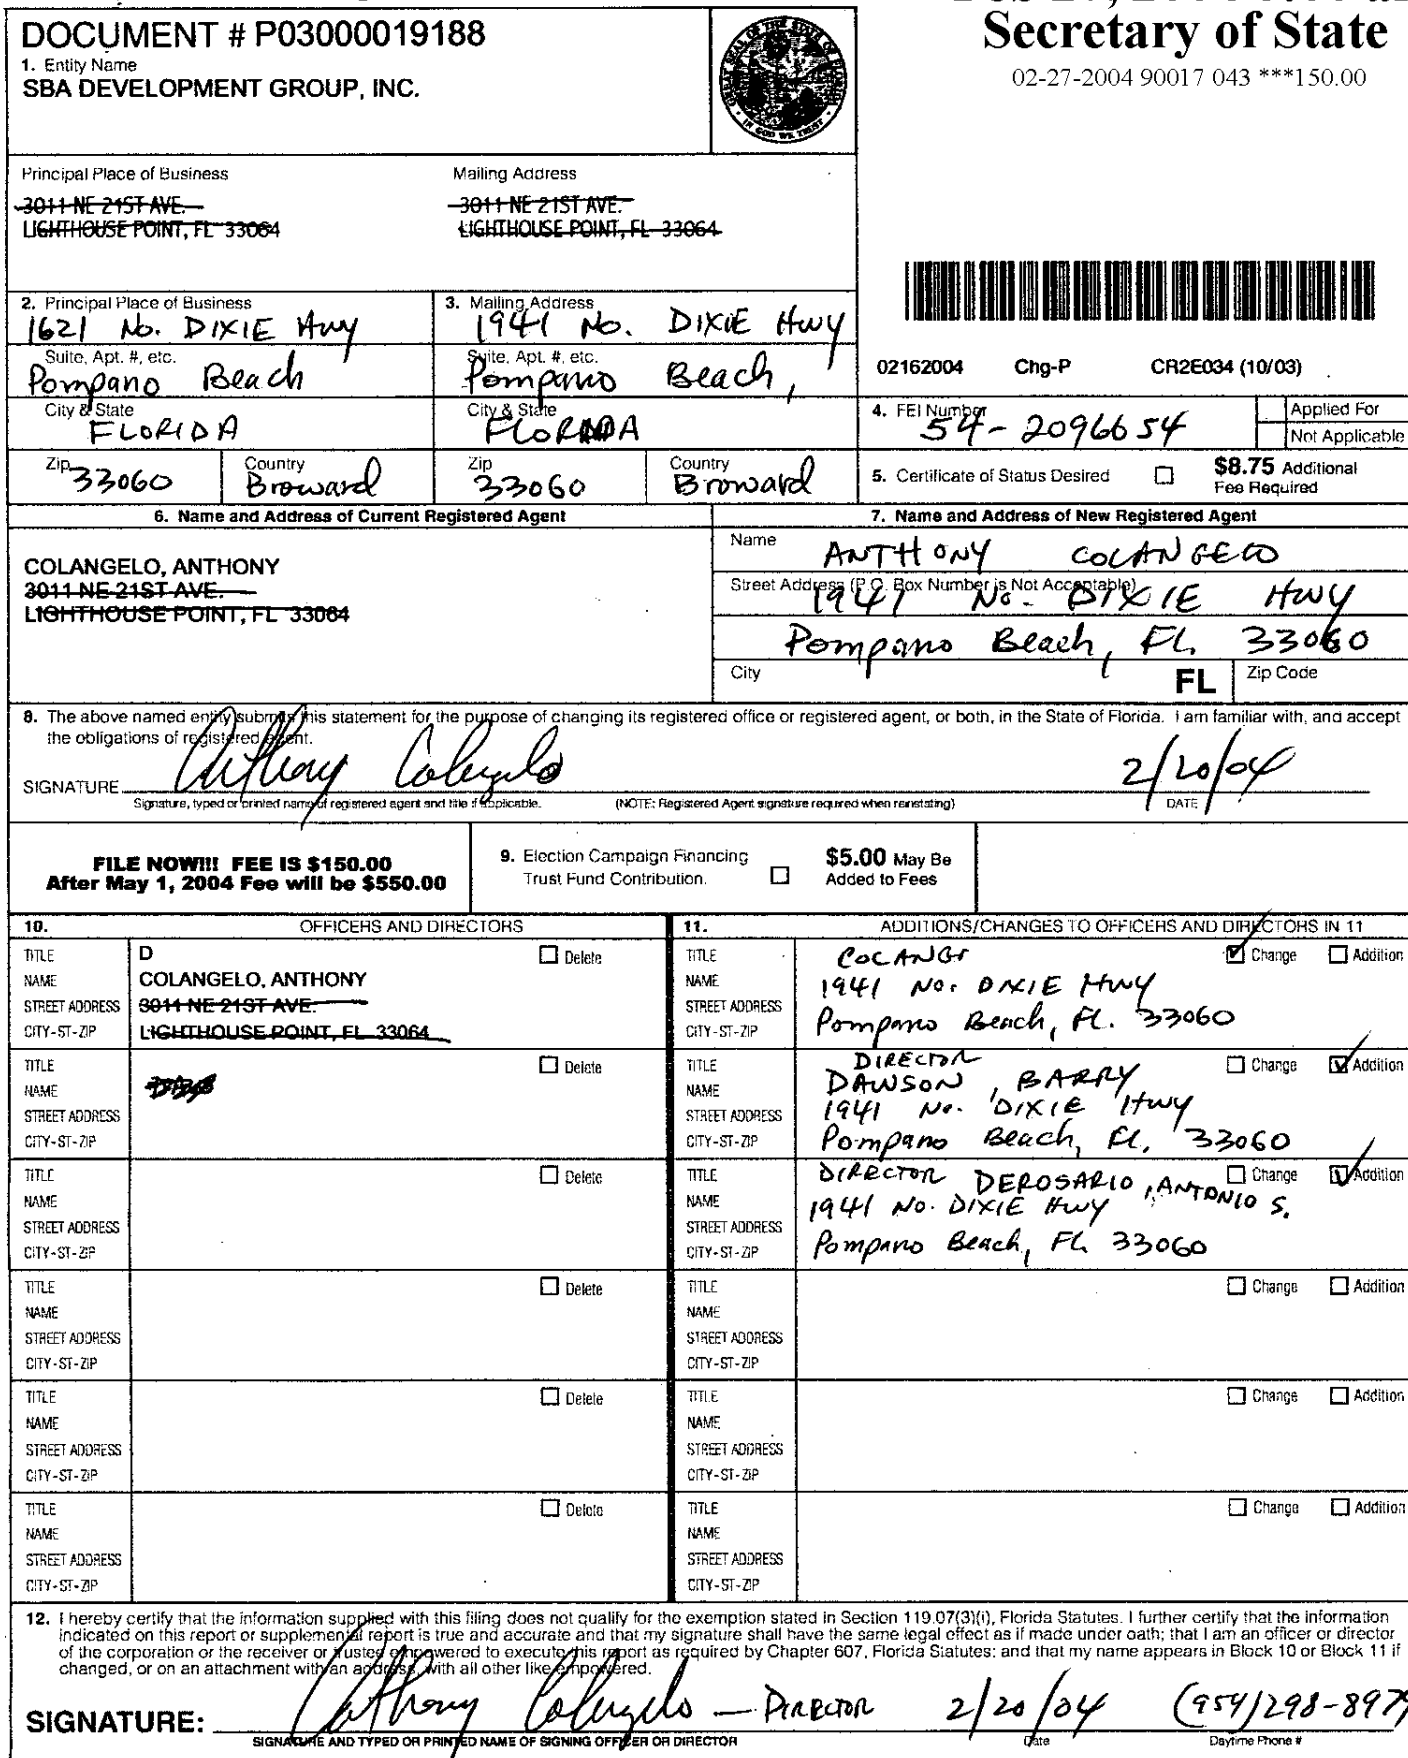 Secretary of State
02-27-2004 90017 043 ***150.00
DOCUMENT # P03000019188
1. Entity Name
SBA DEVELOPMENT GROUP, INC.
Principal Place of Business
3011 NE 21ST AVE.
LIGHTHOUSE POINT, FL 33064
Mailing Address
3011 NE 21ST AVE.
LIGHTHOUSE POINT, FL 33064
2. Principal Place of Business
1621 No. DIXIE Hwy
Suite, Apt. #, etc.
Pompano Beach
City & State
FLORIDA
Zip
33060
Country
Broward
3. Mailing Address
1941 No. DIXIE Hwy
Suite, Apt. #, etc.
Pompano Beach,
City & State
FLORIDA
Zip
33060
Country
Broward
02162004 Chg-P CR2E034 (10/03)
4. FEI Number
54-2096654
Applied For
Not Applicable
5. Certificate of Status Desired
$8.75 Additional
Fee Required
6. Name and Address of Current Registered Agent
COLANGELO, ANTHONY
3011 NE 21ST AVE.
LIGHTHOUSE POINT, FL 33064
7. Name and Address of New Registered Agent
Name
ANTHONY COLANGELO
Street Address (P.O. Box Number is Not Acceptable)
1941 No. DIXIE HWY
Pompano Beach, FL 33060
City
FL
Zip Code
8. The above named entity submits this statement for the purpose of changing its registered office or registered agent, or both, in the State of Florida. I am familiar with, and accept
the obligations of registered agent.
SIGNATURE Anthony Colangelo 2/20/04
Signature, typed or printed name of registered agent and title if applicable. (NOTE: Registered Agent signature required when reinstating) DATE
FILE NOW!!! FEE IS $150.00
After May 1, 2004 Fee will be $550.00
9. Election Campaign Financing
Trust Fund Contribution.
$5.00 May Be
Added to Fees
10. OFFICERS AND DIRECTORS
TITLE D Delete
NAME COLANGELO, ANTHONY
STREET ADDRESS 3011 NE 21ST AVE.
CITY-ST-ZIP LIGHTHOUSE POINT, FL 33064
TITLE Delete
NAME
STREET ADDRESS
CITY-ST-ZIP
TITLE Delete
NAME
STREET ADDRESS
CITY-ST-ZIP
TITLE Delete
NAME
STREET ADDRESS
CITY-ST-ZIP
TITLE Delete
NAME
STREET ADDRESS
CITY-ST-ZIP
TITLE Delete
NAME
STREET ADDRESS
CITY-ST-ZIP
11. ADDITIONS/CHANGES TO OFFICERS AND DIRECTORS IN 11
TITLE Change Addition
NAME 1941 No. DIXIE HWY
STREET ADDRESS
CITY-ST-ZIP Pompano Beach, FL. 33060
TITLE DIRECTOR Change Addition
NAME DAWSON, BARRY
STREET ADDRESS 1941 No. DIXIE Hwy
CITY-ST-ZIP Pompano Beach, FL. 33060
TITLE DIRECTOR DEROSARIO, ANTONIO S. Change Addition
NAME 1941 No. DIXIE Hwy
STREET ADDRESS
CITY-ST-ZIP Pompano Beach, FL 33060
TITLE Change Addition
NAME
STREET ADDRESS
CITY-ST-ZIP
TITLE Change Addition
NAME
STREET ADDRESS
CITY-ST-ZIP
TITLE Change Addition
NAME
STREET ADDRESS
CITY-ST-ZIP
12. I hereby certify that the information supplied with this filing does not qualify for the exemption stated in Section 119.07(3)(i), Florida Statutes. I further certify that the information
indicated on this report or supplemental report is true and accurate and that my signature shall have the same legal effect as if made under oath; that I am an officer or director
of the corporation or the receiver or trustee empowered to execute this report as required by Chapter 607, Florida Statutes; and that my name appears in Block 10 or Block 11 if
changed, or on an attachment with an address, with all other like empowered.
SIGNATURE: Anthony Colangelo — DIRECTOR 2/20/04 (954)298-8979
SIGNATURE AND TYPED OR PRINTED NAME OF SIGNING OFFICER OR DIRECTOR Date Daytime Phone #